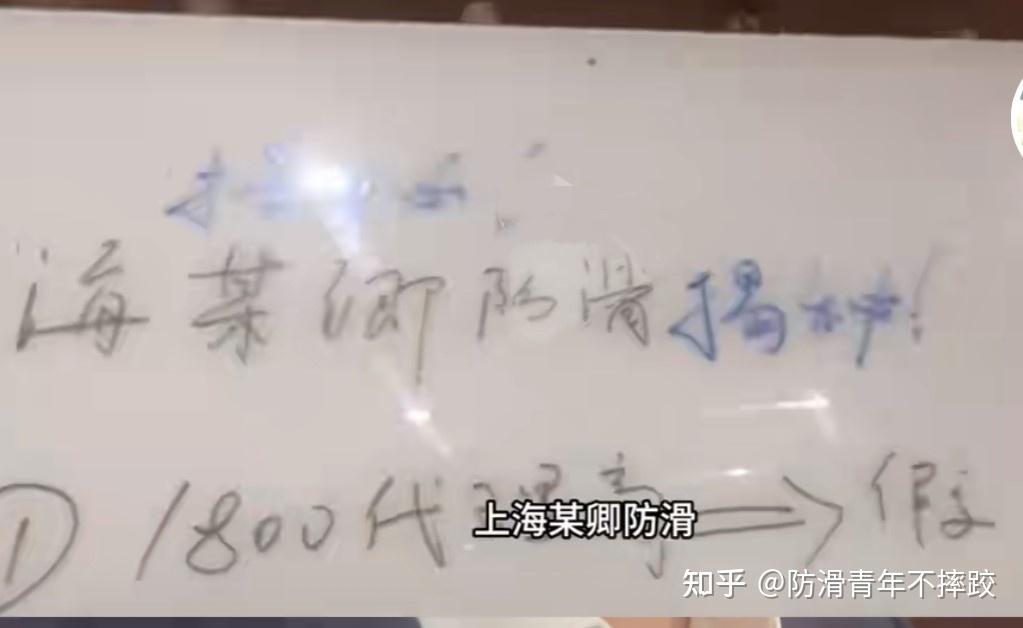 海某卿防滑揭秘!
① 1800代理商 ⇒ 假
上海某卿防滑
知乎 @防滑青年不摔跤